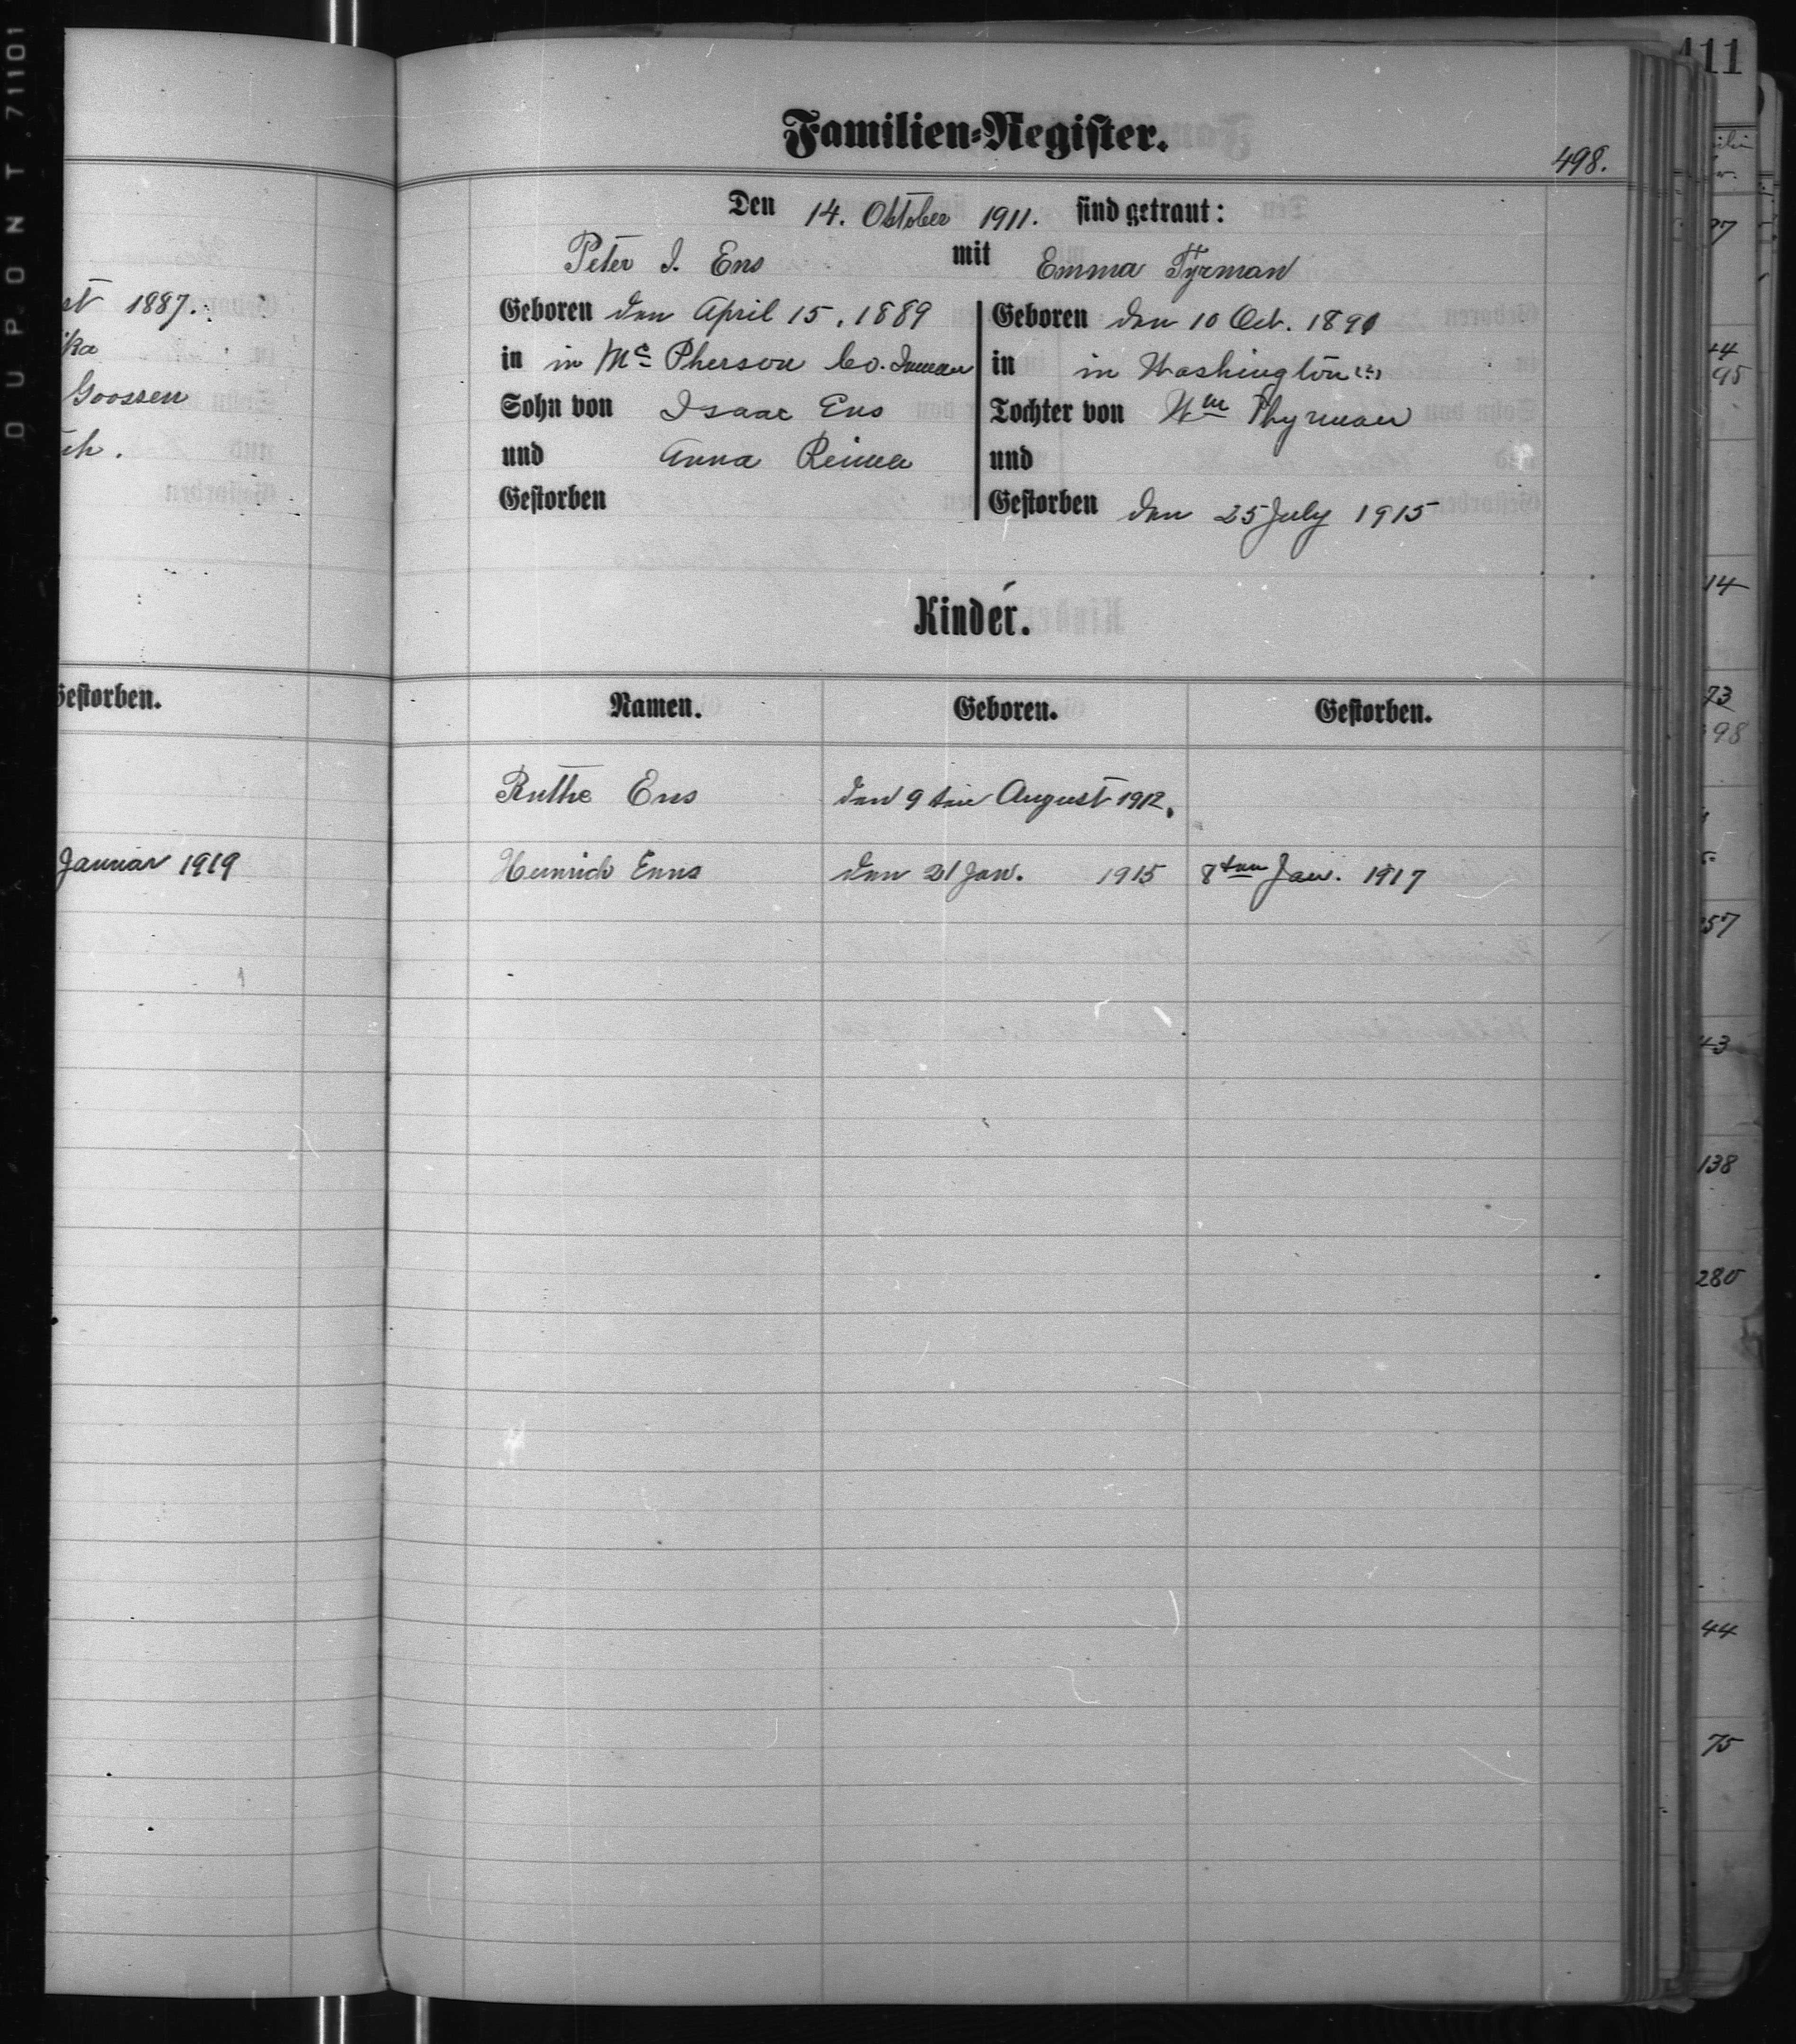 DUPONT.71101
411
Familien-Register.
498.
Den 14. Oktober 1911. sind getraut:
Peter I. Ens mit Emma Tyrman
Geboren den April 15, 1889
in in Mc Pherson Co. Inman
Sohn von Isaac Ens
und Anna Reimer
Gestorben
Geboren den 10 Oct. 1890
in in Washington
Tochter von Wm Thyrman
und
Gestorben den 25 July 1915
Kinder.
Namen. Geboren. Gestorben.
Ruthe Ens den 9 ten August 1912.
Heinrich Enns den 21 Jan. 1915 8ten Jan. 1917
1887.
Goossen
Gestorben.
Januar 1919
14
73
98
257
43
138
280
44
75